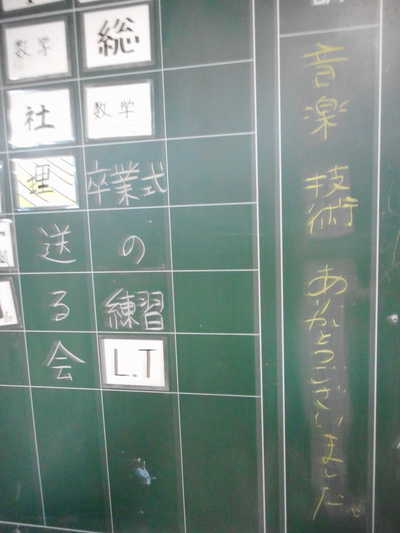 音楽 技術 ありがとうございました。
総
数学
卒業式
の
練習
L.T
数学
社
理
送
る
会